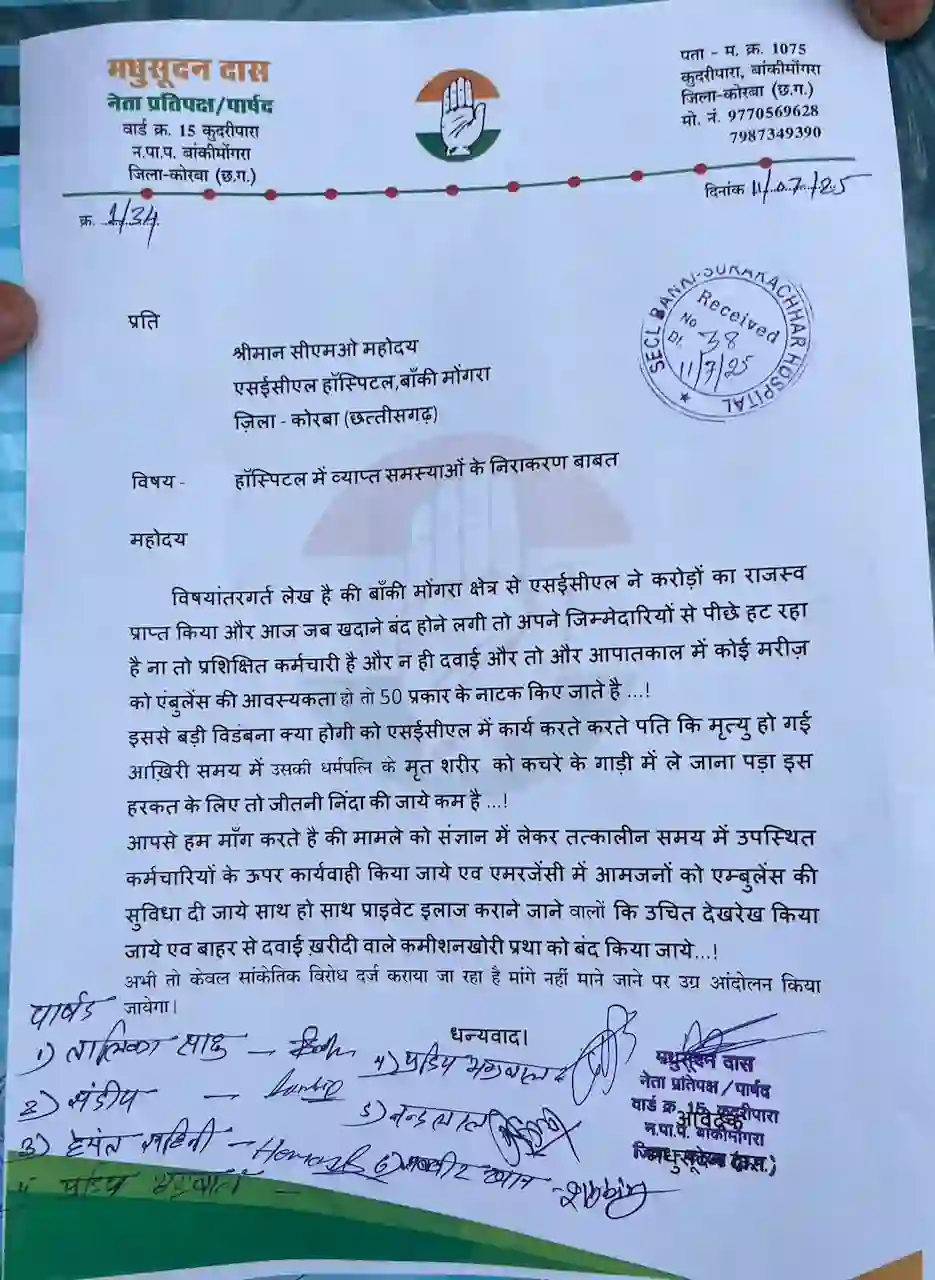 मधुसूदन दास
नेता प्रतिपक्ष/पार्षद
वार्ड क्र. 15 कुदरीपारा
न.पा.प. बांकीमोंगरा
जिला-कोरबा (छ.ग.)
पता - म. क्र. 1075
कुदरीपारा, बांकीमोंगरा
जिला-कोरबा (छ.ग.)
मो. नं. 9770569628
7987349390
क्र. 1/34
दिनांक 11/07/25
SECL BANKI-SURAKACHHAR HOSPITAL
Received
No 38
Dt. 11/7/25
प्रति
श्रीमान सीएमओ महोदय
एसईसीएल हॉस्पिटल,बाँकी मोंगरा
ज़िला - कोरबा (छत्तीसगढ़)
विषय - हॉस्पिटल में व्याप्त समस्याओं के निराकरण बाबत
महोदय
विषयांतरगर्त लेख है की बाँकी मोंगरा क्षेत्र से एसईसीएल ने करोड़ों का राजस्व
प्राप्त किया और आज जब खदाने बंद होने लगी तो अपने जिम्मेदारियों से पीछे हट रहा
है ना तो प्रशिक्षित कर्मचारी है और न ही दवाई और तो और आपातकाल में कोई मरीज़
को एंबुलेंस की आवस्यकता हो तो 50 प्रकार के नाटक किए जाते है ...!
इससे बड़ी विडंबना क्या होगी को एसईसीएल में कार्य करते करते पति कि मृत्यु हो गई
आख़िरी समय में उसकी धर्मपत्नि के मृत शरीर को कचरे के गाड़ी में ले जाना पड़ा इस
हरकत के लिए तो जीतनी निंदा की जाये कम है ...!
आपसे हम माँग करते है की मामले को संज्ञान में लेकर तत्कालीन समय में उपस्थित
कर्मचारियों के ऊपर कार्यवाही किया जाये एव एमरजेंसी में आमजनों को एम्बुलेंस की
सुविधा दी जाये साथ हो साथ प्राइवेट इलाज कराने जाने वालों कि उचित देखरेख किया
जाये एव बाहर से दवाई ख़रीदी वाले कमीशनखोरी प्रथा को बंद किया जाये...!
अभी तो केवल सांकेतिक विरोध दर्ज कराया जा रहा है मांगे नहीं माने जाने पर उग्र आंदोलन किया
जायेगा।
धन्यवाद।
पार्षद
1) साहु
2) संदीप
3) हेमंत साहिनी
4) प्रदिप अग्रवाल
5) नन्दलाल
6) खान
4 प्रदिप अग्रवाल
मधुसूदन दास
नेता प्रतिपक्ष/पार्षद
वार्ड क्र. 15, कुदरीपारा
आवेदक
न.पा.प. बांकीमोंगरा